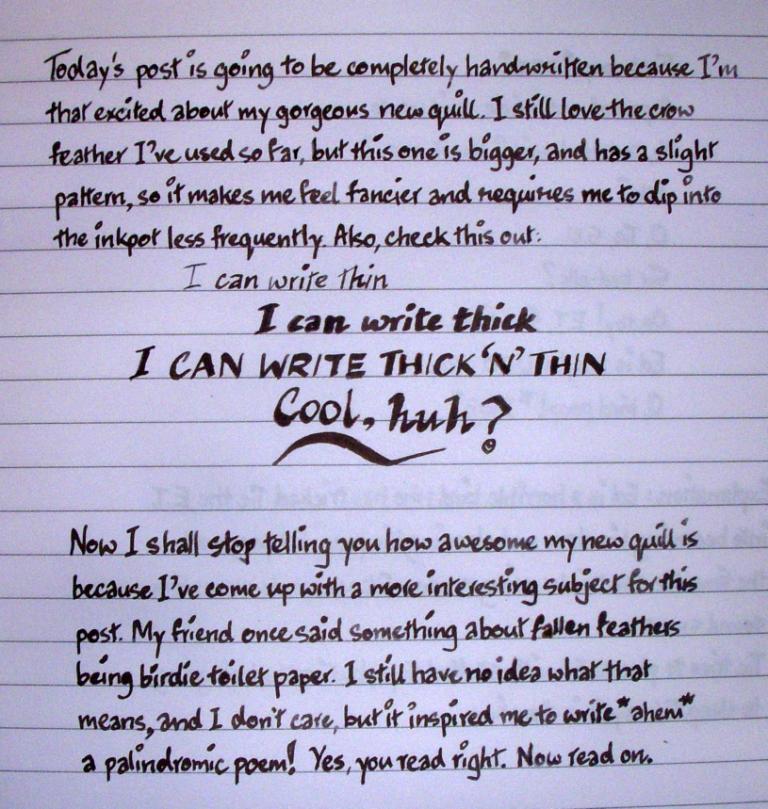 Today's post is going to be completely handwritten because I'm
that excited about my gorgeous new quill. I still love the crow
feather I've used so far, but this one is bigger, and has a slight
pattern, so it makes me feel fancier and requires me to dip into
the inkpot less frequently. Also, check this out:
I can write thin
I can write thick
I CAN WRITE THICK 'N' THIN
Cool, huh?
Now I shall stop telling you how awesome my new quill is
because I've come up with a more interesting subject for this
post. My friend once said something about fallen feathers
being birdie toilet paper. I still have no idea what that
means, and I don't care, but it inspired me to write *ahem*
a palindromic poem! Yes, you read right. Now read on.